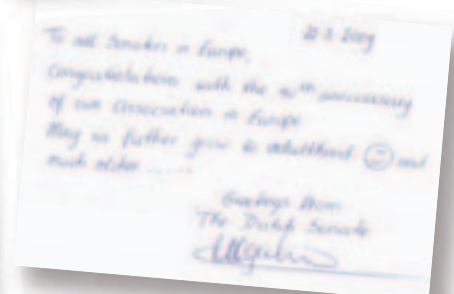 2009
To all Senates in Europe,
Congratulations with the 10th anniversary
of our Association in Europe
May we further grow to adulthood and
much older ......
Greetings from
The Dutch Senate